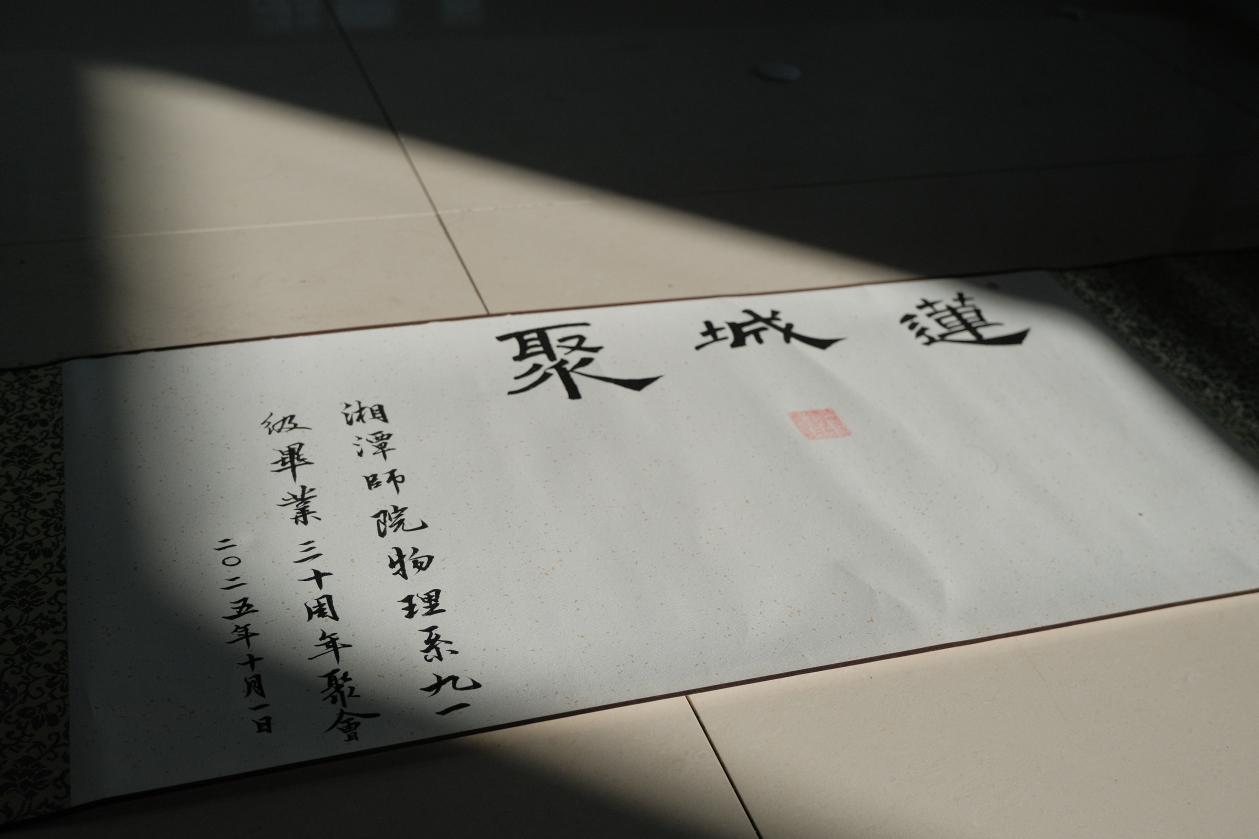 蓮城聚
湘潭師院物理系九一
級畢業三十周年聚會
二〇二五年十月一日